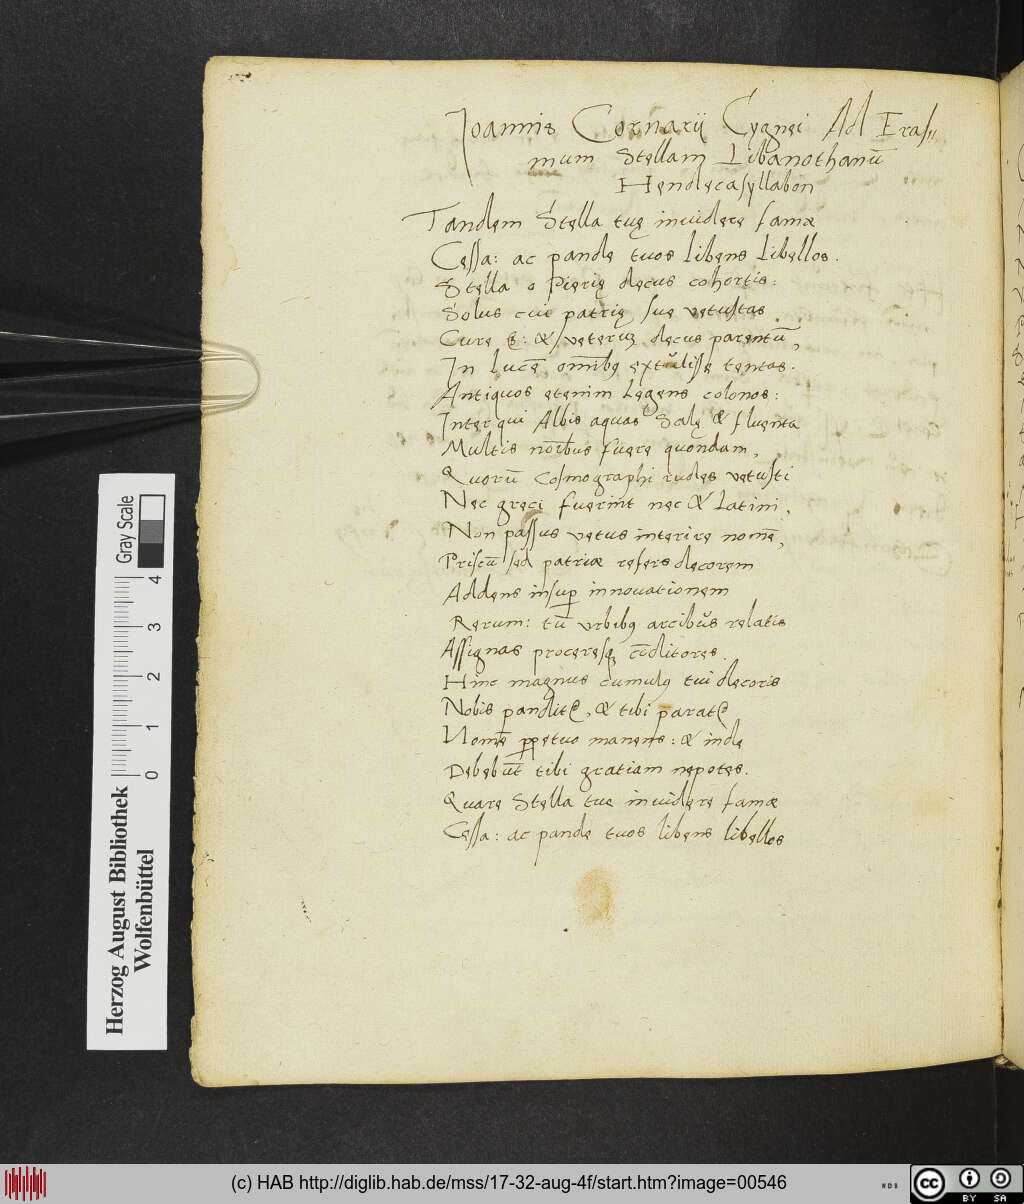 Joannis Cornarij Cygnei Ad Eras//
mum Stellam Libanothanū
Hendecasyllabon
Tandem Stella tuę inuidere famæ
Cessa: ac pande tuos libens libellos.
Stella o Pierię decus cohortis:
Solus cui patrię suę vetustas
Cure ē: & veterū decus parentū,
In lucē omībꝰ extulisse tentas.
Antiquos etenim Legens colonos:
Inter qui Albis aquas Salę & fluenta
Multis noībus fuere quondam,
Quorū Cosmographi rudes vetusti
Nec gręci fuerint nec & Latini,
Non passus vetus interire nomē,
Priscū sed patriæ refers decorem
Addens insuꝑ innouationem
Rerum: tū vrbibꝰ arcibūs relatis
Assignas proceresqꝫ cōditores.
Hinc magnus cumulꝰ tui decoris
Nobis pandit᷑, & tibi parat᷑
Nomē ꝑpetuo manens: & inde
Debebūt tibi gratiam nepotes.
Quare Stella tue inuidere famæ
Cessa: ac pande tuos libens libellos
Gray Scale
4
3
2
1
0
Herzog August Bibliothek
Wolfenbüttel
(c) HAB http://diglib.hab.de/mss/17-32-aug-4f/start.htm?image=00546
WDB
cc
BY
SA